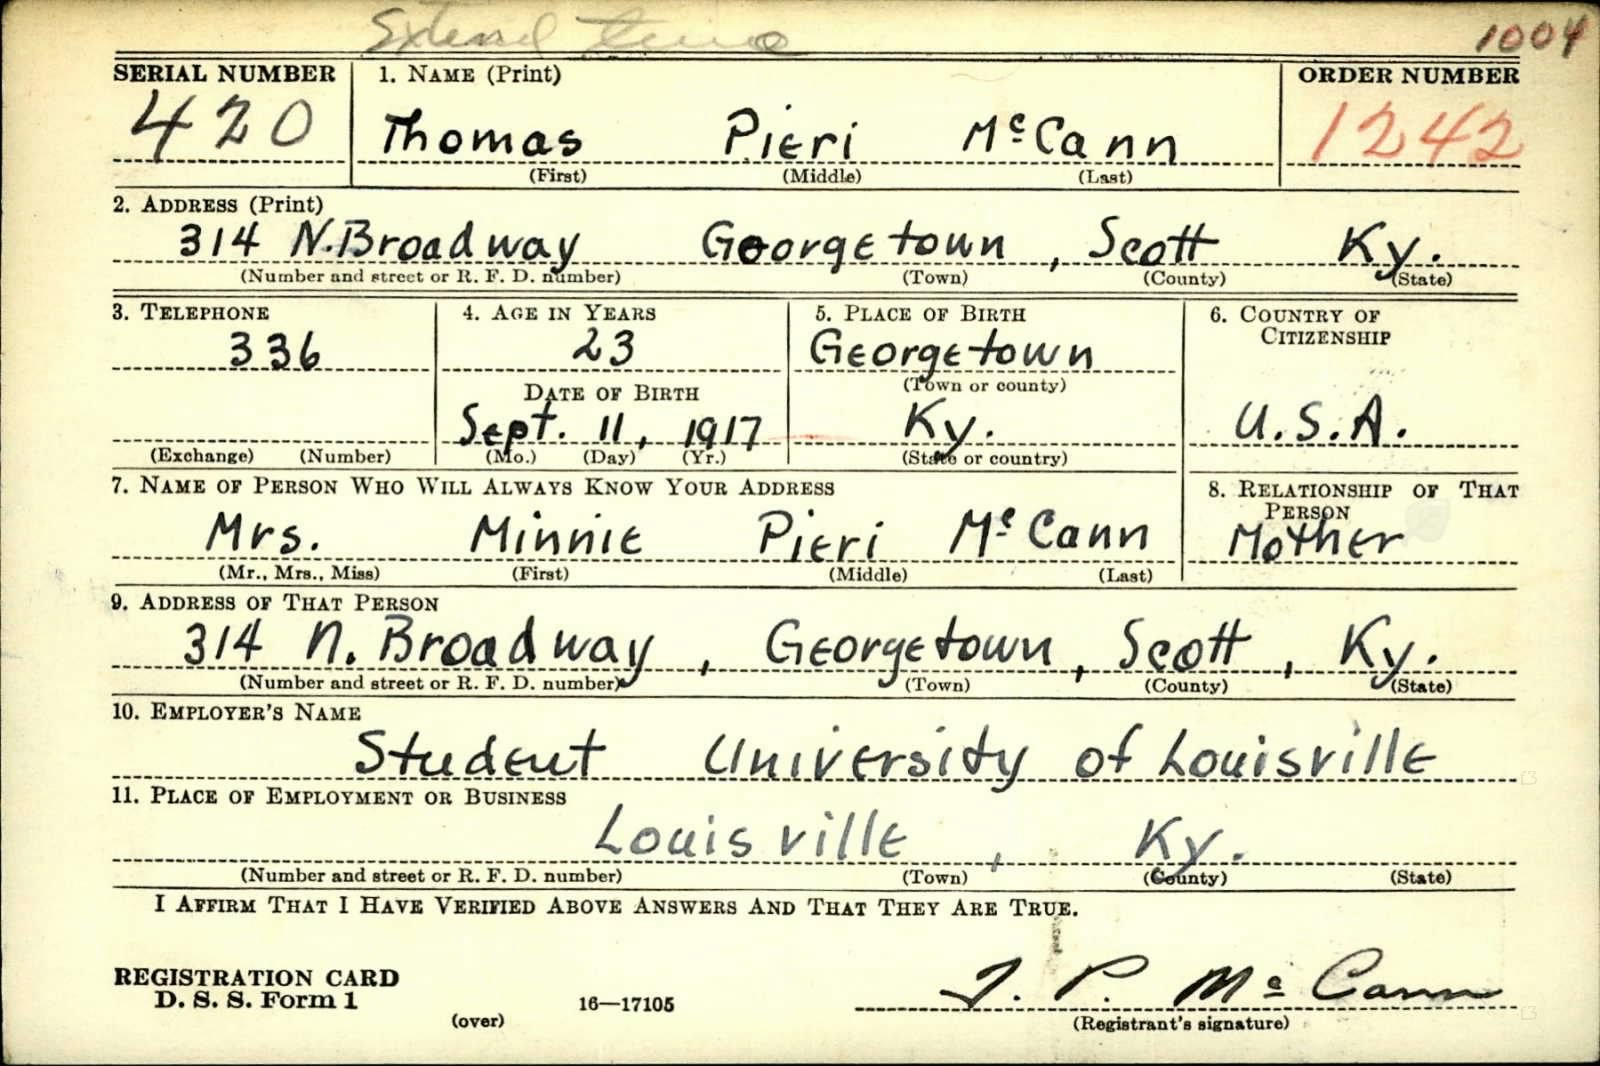 1004
SERIAL NUMBER 1. NAME (Print) ORDER NUMBER
420 Thomas Pieri McCann 1242
(First) (Middle) (Last)
2. ADDRESS (Print)
314 N. Broadway Georgetown, Scott Ky.
(Number and street or R. F. D. number) (Town) (County) (State)
3. TELEPHONE 4. AGE IN YEARS 5. PLACE OF BIRTH 6. COUNTRY OF
CITIZENSHIP
336 23 Georgetown
(Town or county)
DATE OF BIRTH
Sept. 11, 1917 Ky. U.S.A.
(Exchange) (Number) (Mo.) (Day) (Yr.) (State or country)
7. NAME OF PERSON WHO WILL ALWAYS KNOW YOUR ADDRESS 8. RELATIONSHIP OF THAT
PERSON
Mrs. Minnie Pieri McCann Mother
(Mr., Mrs., Miss) (First) (Middle) (Last)
9. ADDRESS OF THAT PERSON
314 N. Broadway, Georgetown, Scott, Ky.
(Number and street or R. F. D. number) (Town) (County) (State)
10. EMPLOYER'S NAME
Student University of Louisville
11. PLACE OF EMPLOYMENT OR BUSINESS
Louisville, Ky.
(Number and street or R. F. D. number) (Town) (County) (State)
I AFFIRM THAT I HAVE VERIFIED ABOVE ANSWERS AND THAT THEY ARE TRUE.
REGISTRATION CARD
D. S. S. Form 1 16—17105 T. P. McCann
(over) (Registrant's signature)